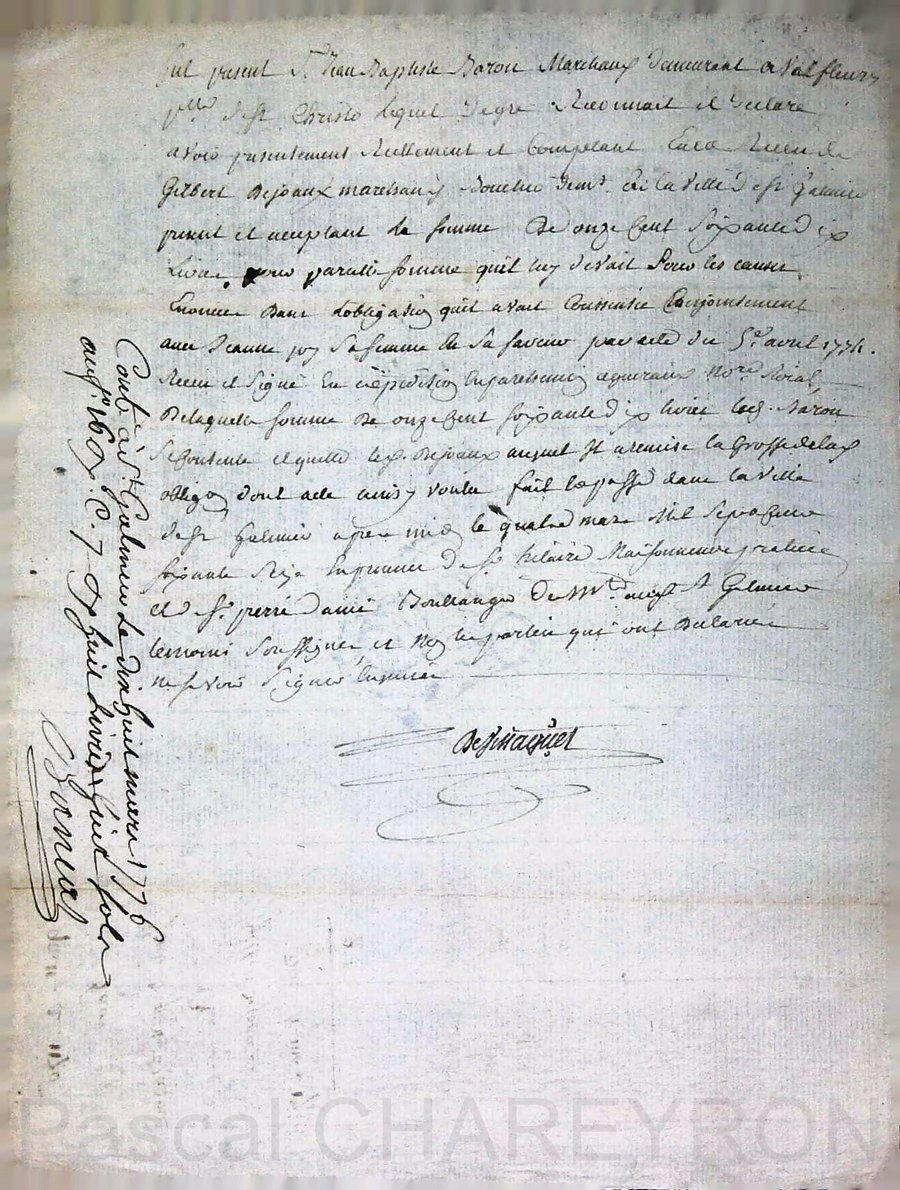 fut present Sr Jean Baptiste Baron Marchand demeurant a Valfleury
psse de St Christo lequel de gré Reconnait et declare
avoir presentement Reellement et Comptant Eu et Receu de
Gilbert Dejoaux marchand boucher demt en la ville de St Galmier
present et acceptant la somme De onze Cent soixante dix
Livres pour pareille somme qu'il luy devait pour les causes
Enoncées dans L'obligation qu'il avait Consentie Conjointement
avec Jeanne joy sa femme En sa faveur par acte du 5e avril 1774.
Receu et signé En expedition En parchemin Nore Roial
De laquelle somme De onze Cent soixante dix livres led. Baron
se Contente et quitte led. Dejoaux auquel Il a remis la Grosse de lad
obligon dont acte ainsy voulu fait et passé dans la ville
de St Galmier apres midi le quatre mars Mil Sept Cent
soixante seize En presence de Sr hilaire Maisonneuve praticien
et de Sr pierre damé Boullanger De St Galmier
temoins Soussignés et Non les parties qui ont declaré
ne savoir signer Enquis
Conté à St Galmier Le dix huit mars 1776
huit Livres huit sols
Pascal CHAREYRON